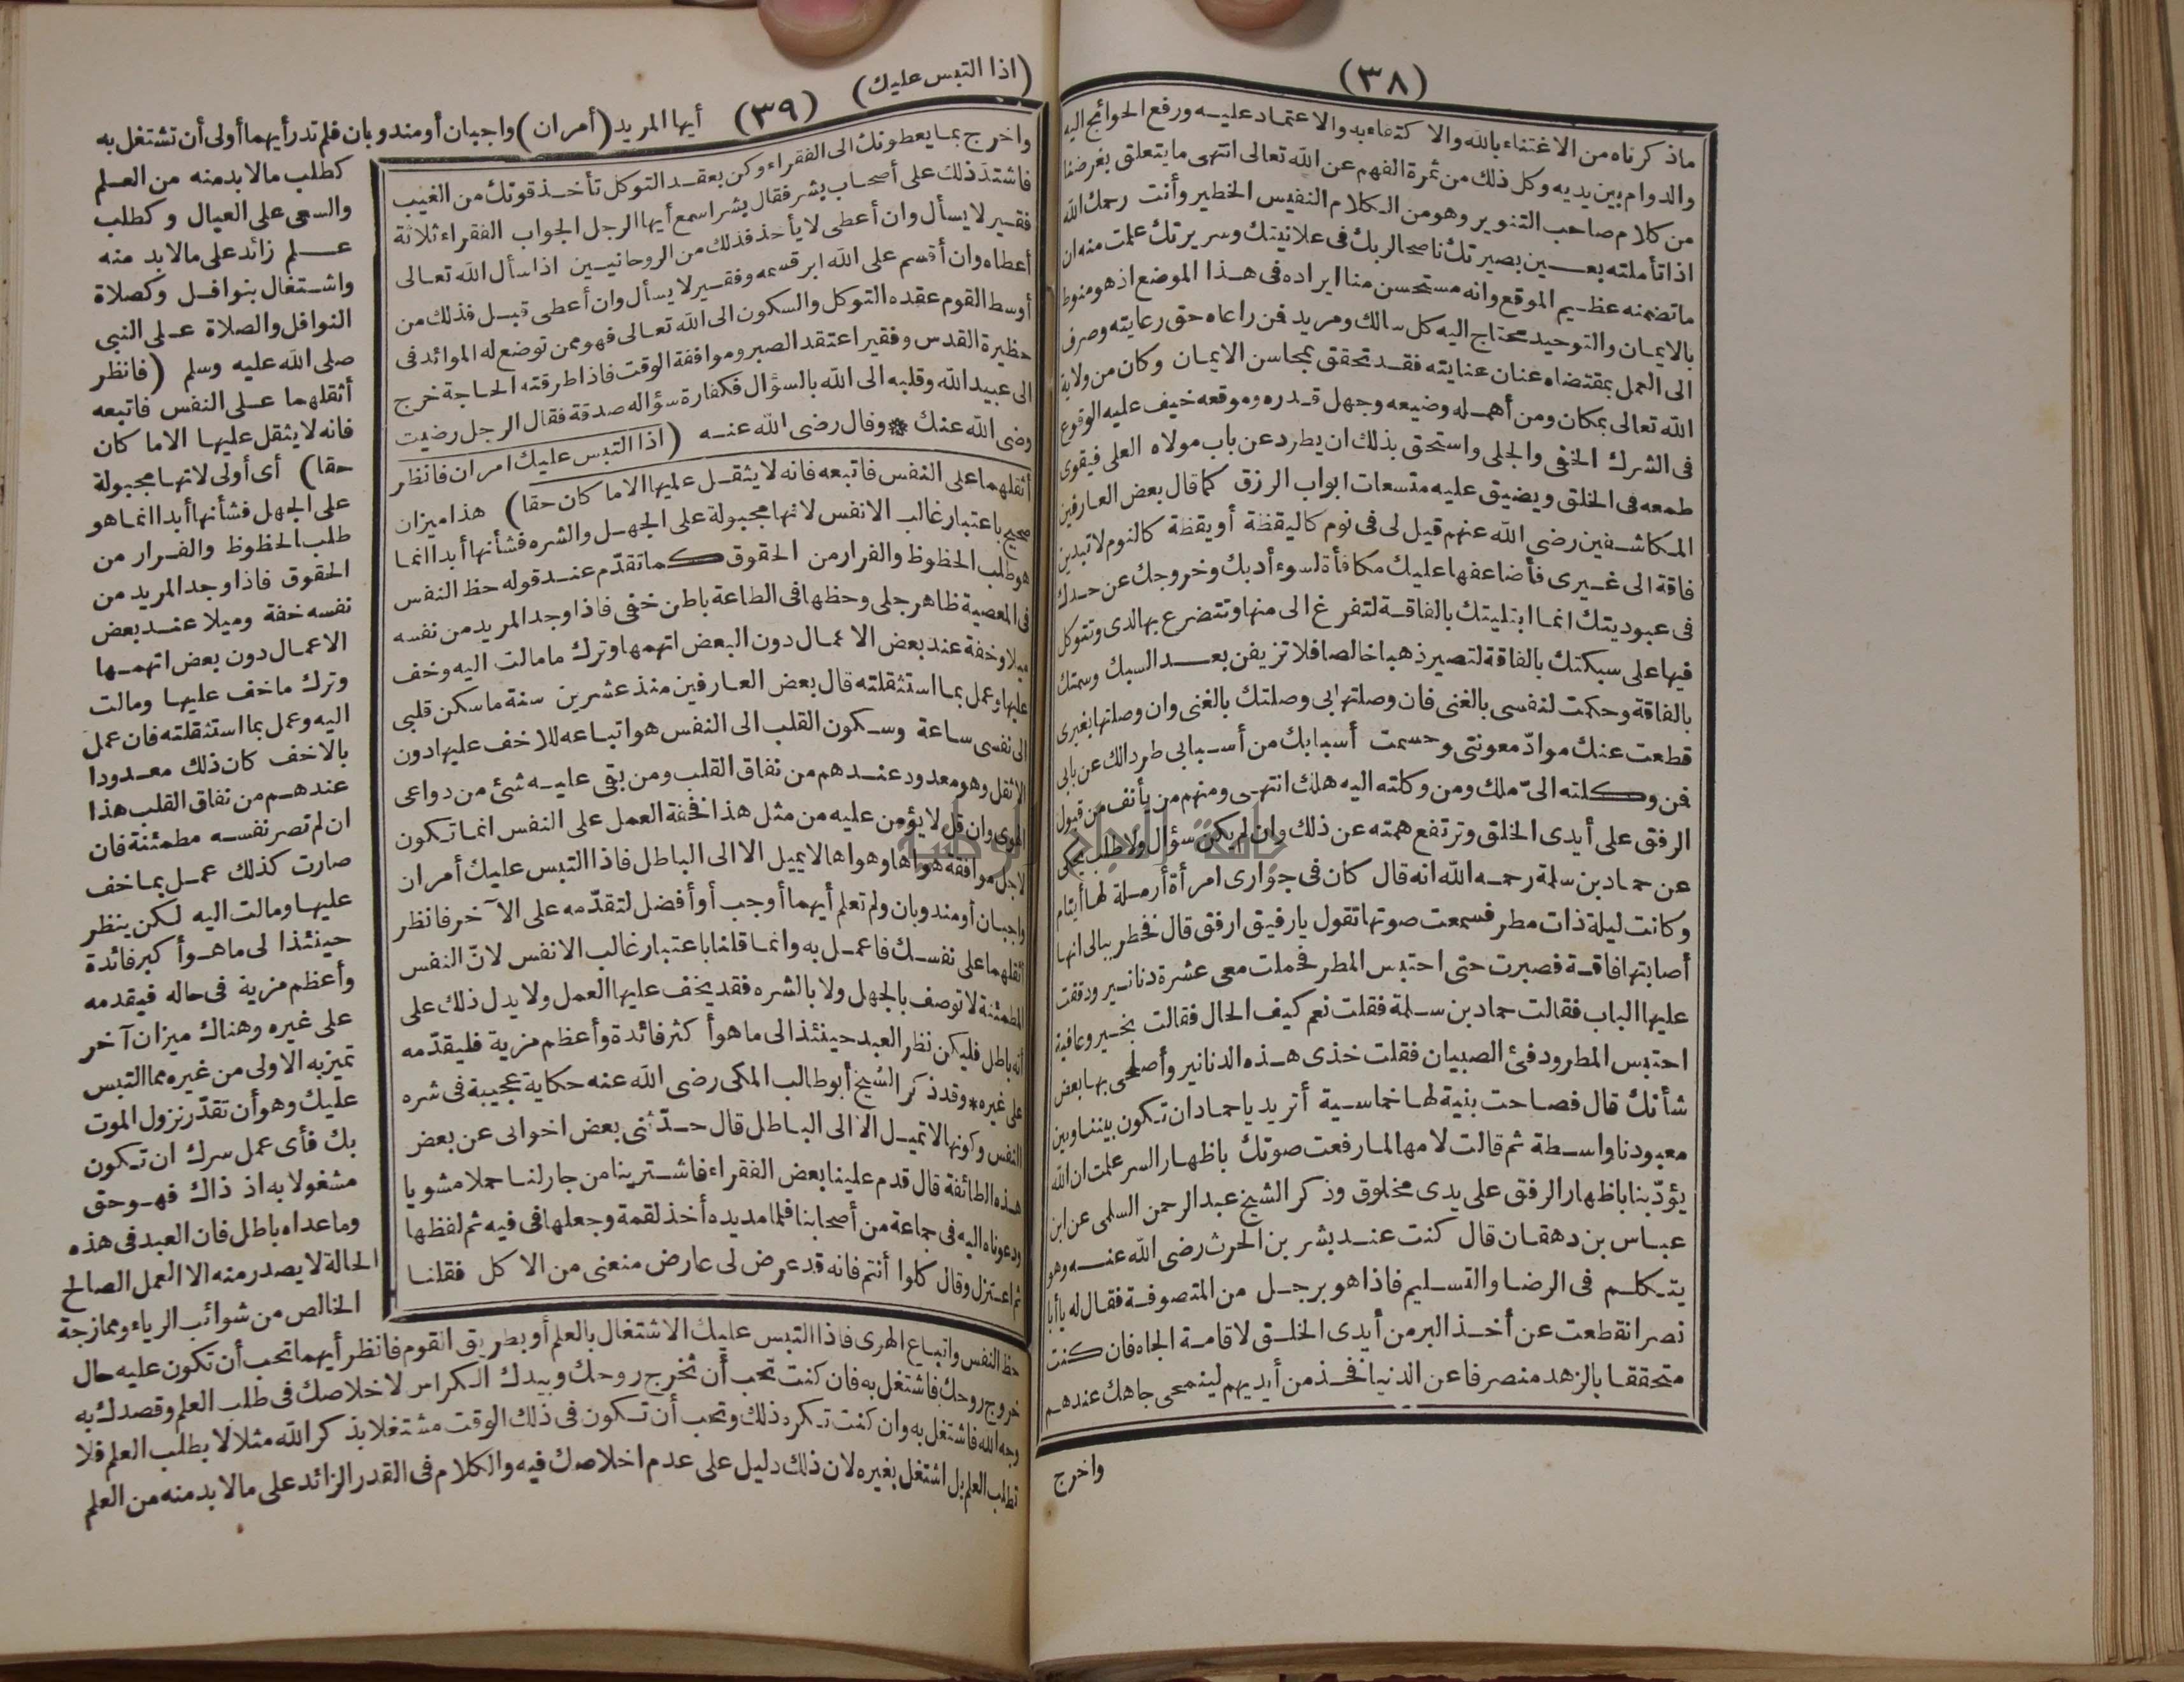 (٣٨)
ماذكرناه من الاغتناء بالله والاكتفاء به والاعتماد عليه ورفع الحوائج اليه
والدوام بين يديه وكل ذلك من ثمرة الفهم عن الله تعالى انتهى ما يتعلق بغرضنا
من كلام صاحب التنوير وهو من الكلام النفيس الخطير وأنت رحمك الله
اذا تأملته بعين بصيرتك ناصحا لربك فى علانيتك وسريرتك علمت منه ان
ما تضمنه عظيم الموقع وانه مستحسن منا ايراده فى هذا الموضع اذ هو منوط
بالايمان والتوحيد محتاج اليه كل سالك ومريد فمن راعاه حق رعايته وصرف
الى العمل بمقتضاه عنان عنايته فقد تحقق بمحاسن الايمان وكان من ولاية
الله تعالى بمكان ومن أهمله وضيعه وجهل قدره وموقعه خيف عليه الوقوع
فى الشرك الخفى والجلى واستحق بذلك ان يطرد عن باب مولاه العلى فيقوى
طمعه فى الخلق ويضيق عليه متسعات ابواب الرزق كما قال بعض العارفين
المكاشفين رضى الله عنهم قيل لى فى نوم كاليقظة أو يقظة كالنوم لا تبدين
فاقة الى غيرى فأضاعفها عليك مكافأة لسوء أدبك وخروجك عن حدك
فى عبوديتك انما ابتليتك بالفاقة لتفرغ الى منها وتتضرع بها لدى وتتوكل
فيها على سبكتك بالفاقة لتصير ذهبا خالصا فلا تزيفن بعد السبك وسمتك
بالفاقة وحكمت لنفسى بالغنى فان وصلتها بى وصلتك بالغنى وان وصلتها بغيرى
قطعت عنك موادّ معونتى وحسمت أسبابك من أسبابى طردا لك عن بابى
فمن وكلته الىّ ملك ومن وكلته اليه هلك انتهى ومنهم من يأنف من قبول
الرفق على أيدى الخلق وترتفع همته عن ذلك وان لم يكن سؤال ولا طلب يحكى
عن حماد بن سلمة رحمه الله انه قال كان فى جوارى امرأة أرملة لها أيتام
وكانت ليلة ذات مطر فسمعت صوتها تقول يا رفيق ارفق قال فخطر ببالى انها
أصابتها فاقة فصبرت حتى احتبس المطر فحملت معى عشرة دنانير ودققت
عليها الباب فقالت حماد بن سلمة فقلت نعم كيف الحال فقالت بخير وعافية
احتبس المطر ودفئ الصبيان فقلت خذى هذه الدنانير وأصلحى بها بعض
شأنك قال فصاحت بنية لها خماسية أتريد يا حماد ان تكون بيننا وبين
معبودنا واسطة ثم قالت لامها لما رفعت صوتك باظهار السر علمت ان الله
يؤدّبنا باظهار الرفق على يدى مخلوق وذكر الشيخ عبد الرحمن السلمى عن ابن
عباس بن دهقان قال كنت عند بشر بن الحرث رضى الله عنه وهو
يتكلم فى الرضا والتسليم فاذا هو برجل من المتصوفة فقال له يا أبا
نصر انقطعت عن أخذ البر من أيدى الخلق لاقامة الجاه فان كنت
متحققا بالزهد منصرفا عن الدنيا فخذ من أيديهم لينمحى جاهك عندهم
واخرج
(اذا التبس عليك)
(٣٩)
أيها المريد (أمران) واجبان أو مندوبان فلم تدر أيهما أولى أن تشتغل به
واخرج بما يعطونك الى الفقراء وكن بعقد التوكل تأخذ قوتك من الغيب
فاشتدّ ذلك على أصحاب بشر فقال بشر اسمع أيها الرجل الجواب الفقراء ثلاثة
فقير لا يسأل وان أعطى لا يأخذ فذلك من الروحانيين اذا سأل الله تعالى
أعطاه وان أقسم على الله ابر قسمه وفقير لا يسأل وان أعطى قبل فذلك من
أوسط القوم عقده التوكل والسكون الى الله تعالى فهو ممن توضع له الموائد فى
حظيرة القدس وفقير اعتقد الصبر وموافقة الوقت فاذا طرقته الحاجة خرج
الى عبيد الله وقلبه الى الله بالسؤال فكفارة سؤاله صدقة فقال الرجل رضيت
رضى الله عنك * وقال رضى الله عنه (اذا التبس عليك امران فانظر
أثقلهما على النفس فاتبعه فانه لا يثقل عليها الا ما كان حقا) هذا ميزان
صحيح باعتبار غالب الانفس لانها مجبولة على الجهل والشره فشأنها أبدا انما
هو طلب الحظوظ والفرار من الحقوق كما تقدّم عند قوله حظ النفس
فى المعصية ظاهر جلى وحظها فى الطاعة باطن خفى فاذا وجد المريد من نفسه
ميلا وخفة عند بعض الاعمال دون البعض اتهمها وترك ما مالت اليه وخف
عليها وعمل بما استثقلته قال بعض العارفين منذ عشرين سنة ما سكن قلبى
الى نفسى ساعة وسكون القلب الى النفس هو اتباعه للاخف عليها دون
الاثقل وهو معدود عندهم من نفاق القلب ومن بقى عليه شئ من دواعى
الهوى وان قل لا يؤمن عليه من مثل هذا فخفة العمل على النفس انما تكون
لاجل موافقة هواها وهواها لا يميل الا الى الباطل فاذا التبس عليك أمران
واجبان أو مندوبان ولم تعلم أيهما أوجب أو أفضل لتقدّمه على الآخر فانظر
أثقلهما على نفسك فاعمل به وانما قلنا باعتبار غالب الانفس لانّ النفس
المطمئنة لا توصف بالجهل ولا بالشره فقد يخف عليها العمل ولا يدل ذلك على
أنه باطل فليكن نظر العبد حينئذ الى ما هو أكثر فائدة وأعظم مزية فليقدّمه
على غيره * وقد ذكر الشيخ أبو طالب المكى رضى الله عنه حكاية عجيبة فى شره
النفس وكونها لا تميل الا الى الباطل قال حدّثنى بعض اخوانى عن بعض
هذه الطائفة قال قدم علينا بعض الفقراء فاشترينا من جار لنا حملا مشويا
ودعوناه اليه فى جماعة من أصحابنا فلما مد يده أخذ لقمة وجعلها فى فيه ثم لفظها
ثم اعتزل وقال كلوا أنتم فانه قد عرض لى عارض منعنى من الاكل فقلنا
كطلب ما لا بد منه من العلم
والسعى على العيال وكطلب
علم زائد على ما لا بد منه
واشتغال بنوافل وكصلاة
النوافل والصلاة على النبى
صلى الله عليه وسلم (فانظر
أثقلهما على النفس فاتبعه
فانه لا يثقل عليها الا ما كان
حقا) أى أولى لانها مجبولة
على الجهل فشأنها أبدا انما هو
طلب الحظوظ والفرار من
الحقوق فاذا وجد المريد من
نفسه خفة وميلا عند بعض
الاعمال دون بعض اتهمها
وترك ما خف عليها ومالت
اليه وعمل بما استثقلته فان عمل
بالاخف كان ذلك معدودا
عندهم من نفاق القلب هذا
ان لم تصر نفسه مطمئنة فان
صارت كذلك عمل بما خف
عليها ومالت اليه لكن ينظر
حينئذ الى ما هو أكبر فائدة
وأعظم مزية فى حاله فيقدمه
على غيره وهناك ميزان آخر
تميز به الاولى من غيره مما التبس
عليك وهو أن تقدّر نزول الموت
بك فأى عمل سرك ان تكون
مشغولا به اذ ذاك فهو حق
وما عداه باطل فان العبد فى هذه
الحالة لا يصدر منه الا العمل الصالح
الخالص من شوائب الرياء وممازجة
حظ النفس واتباع الهوى فاذا التبس عليك الاشتغال بالعلم أو بطريق القوم فانظر أيهما تحب أن تكون عليه حال
خروج روحك فاشتغل به فان كنت تحب أن تخرج روحك وبيدك الكراس لاخلاصك فى طلب العلم وقصدك به
وجه الله فاشتغل به وان كنت تكره ذلك وتحب أن تكون فى ذلك الوقت مشتغلا بذكر الله مثلا لا بطلب العلم فلا
تطلب العلم بل اشتغل بغيره لان ذلك دليل على عدم اخلاصك فيه والكلام فى القدر الزائد على ما لا بد منه من العلم
جامعة النجاح الوطنية